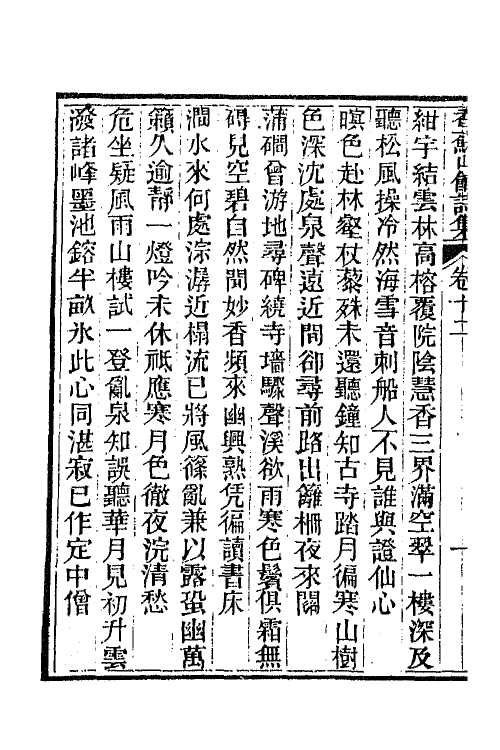 香蘇山館詩集 卷十二 一
紺宇結雲林高榕覆院陰慧香三界滿空翠一樓深及
聽松風操冷然海雪音刺船人不見誰與證仙心
暝色赴林壑杖藜殊未還聽鐘知古寺踏月徧寒山樹
色深沈處泉聲遠近間卻尋前路出籬柵夜來關
蒲磵曾游地尋碑繞寺墻驟聲溪欲雨寒色鬢俱霜無
碍兒空碧自然聞妙香頻來幽興熟凭徧讀書床
澗水來何處淙潺近榻流已將風篠亂兼以露蛩幽萬
籟久逾靜一燈吟未休祗應寒月色徹夜浣清愁
危坐疑風雨山樓試一登亂泉知誤聽華月見初升雲
潑諸峰墨池鎔半畝氷此心同湛寂已作定中僧